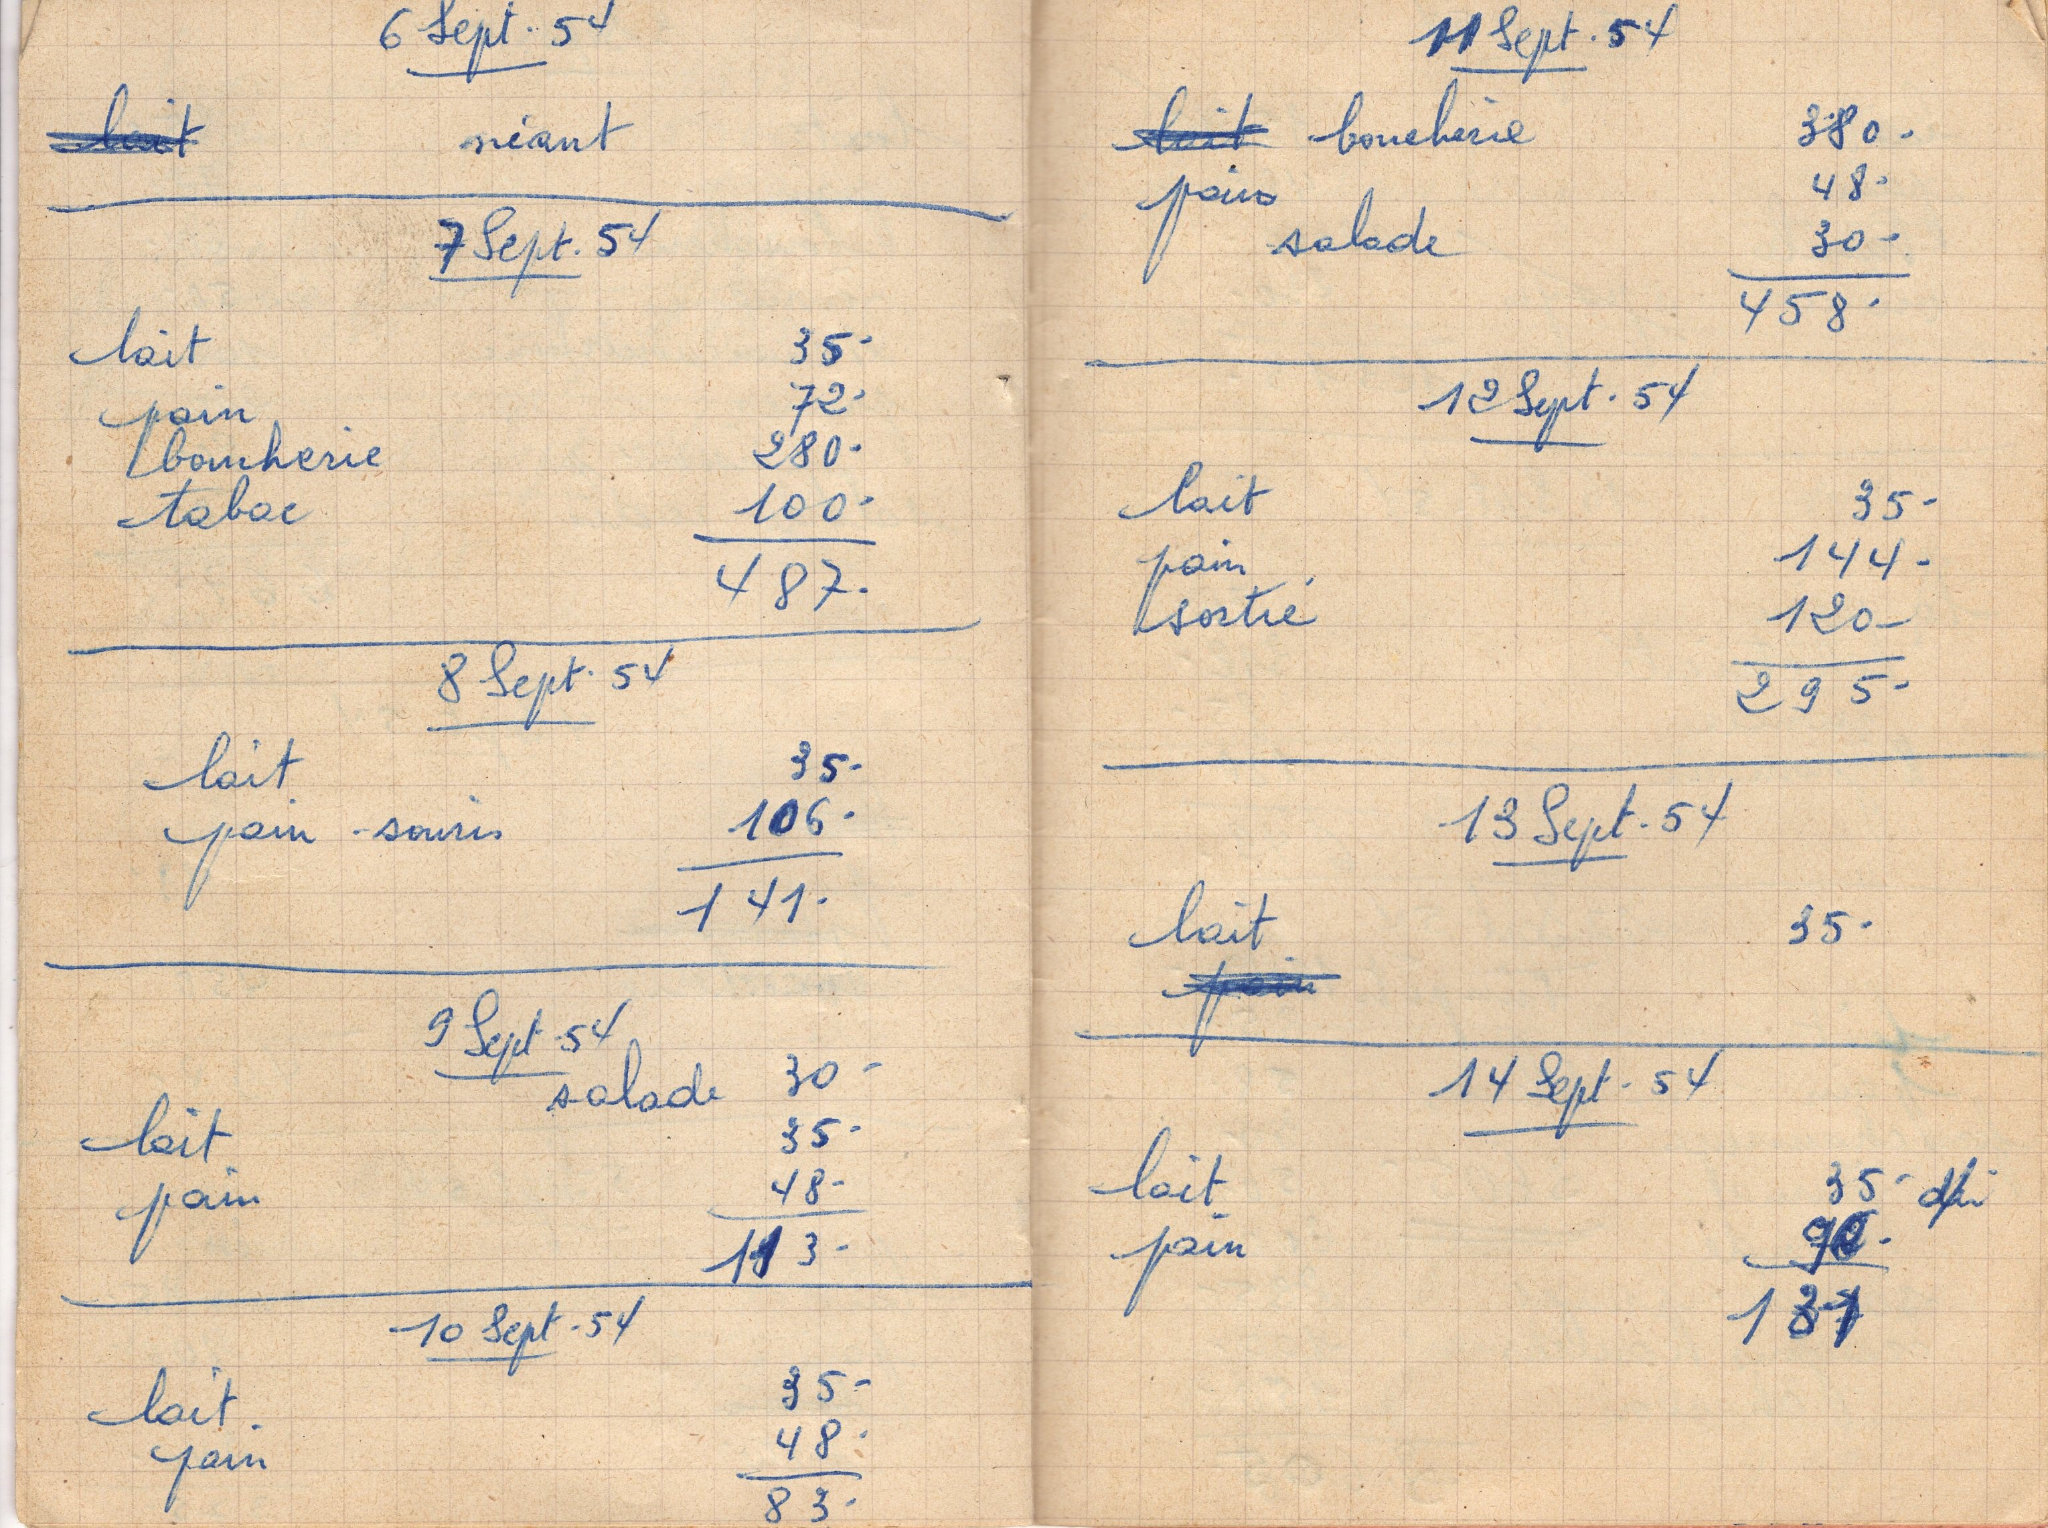 6 Sept. 54
lait néant
7 Sept. 54
lait 35-
pain 72-
boucherie 280-
tabac 100-
487-
8 Sept. 54
lait 35-
pain - souris 106-
141-
9 Sept. 54
salade 30-
lait 35-
pain 48-
113-
10 Sept. 54
lait. 35-
pain 48-
83-
11 Sept. 54
lait boucherie 380-
pain 48-
salade 30-
458-
12 Sept. 54
lait 35-
pain 144-
sortie 120-
295-
13 Sept. 54
lait 35-
pain
14 Sept. 54
lait 35-
pain